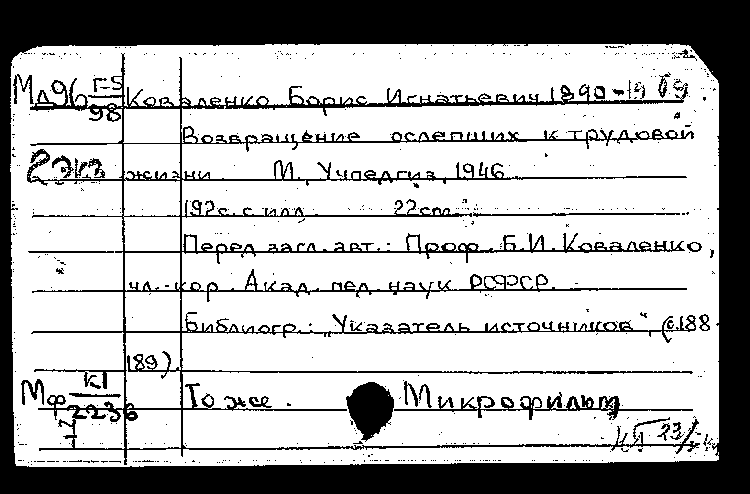 Мд96 Г-5/98 Коваленко, Борис Игнатьевич 1890-1969.
Возвращение ослепших к трудовой
2 экз жизни. М., Учпедгиз, 1946
192с. с илл. 22см.
Перед загл. авт.: Проф. Б.И. Коваленко,
чл.-кор. Акад. пед. наук РСФСР.
Библиогр.: „Указатель источников", (с.188-
189).
Мф К1/2236 То же. Микрофильм